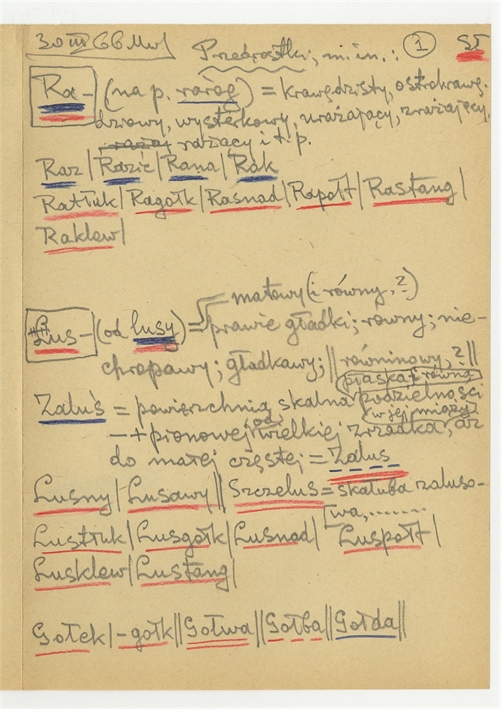 30 III 66 Mw
Przedrostki, m. in.: 1 55
Ra- (na p. raróg) = krawędzisty, ostrokrawę-
dziowy, wysterkowy, urażający, zrażający,
rażący i t. p.
Raz | Razić | Rana | Rak
Rattuk | Ragołk | Rasnad | Rapołt | Rastang |
Raklew |
matowy (i równy, ?)
Lus- (od lusy) = prawie gładki; równy; nie-
chropawy; gładkawy; || równinowy, ? ||
płaska i równa
Zaluś = powierzchnia skalna podzielności
w jej miąższ
-+ pionowej od wielkiej zrzadka, aż
do małej częstej = Zalus
Lusny | Lusawy || Szczelus = skałuba zaluso-
wa, ........
Lustłuk | Lusgołk | Lusnad | Luspołt |
Lusklew | Lustang |
Gołek | -gołk || Gołwa || Gołba || Gołda ||